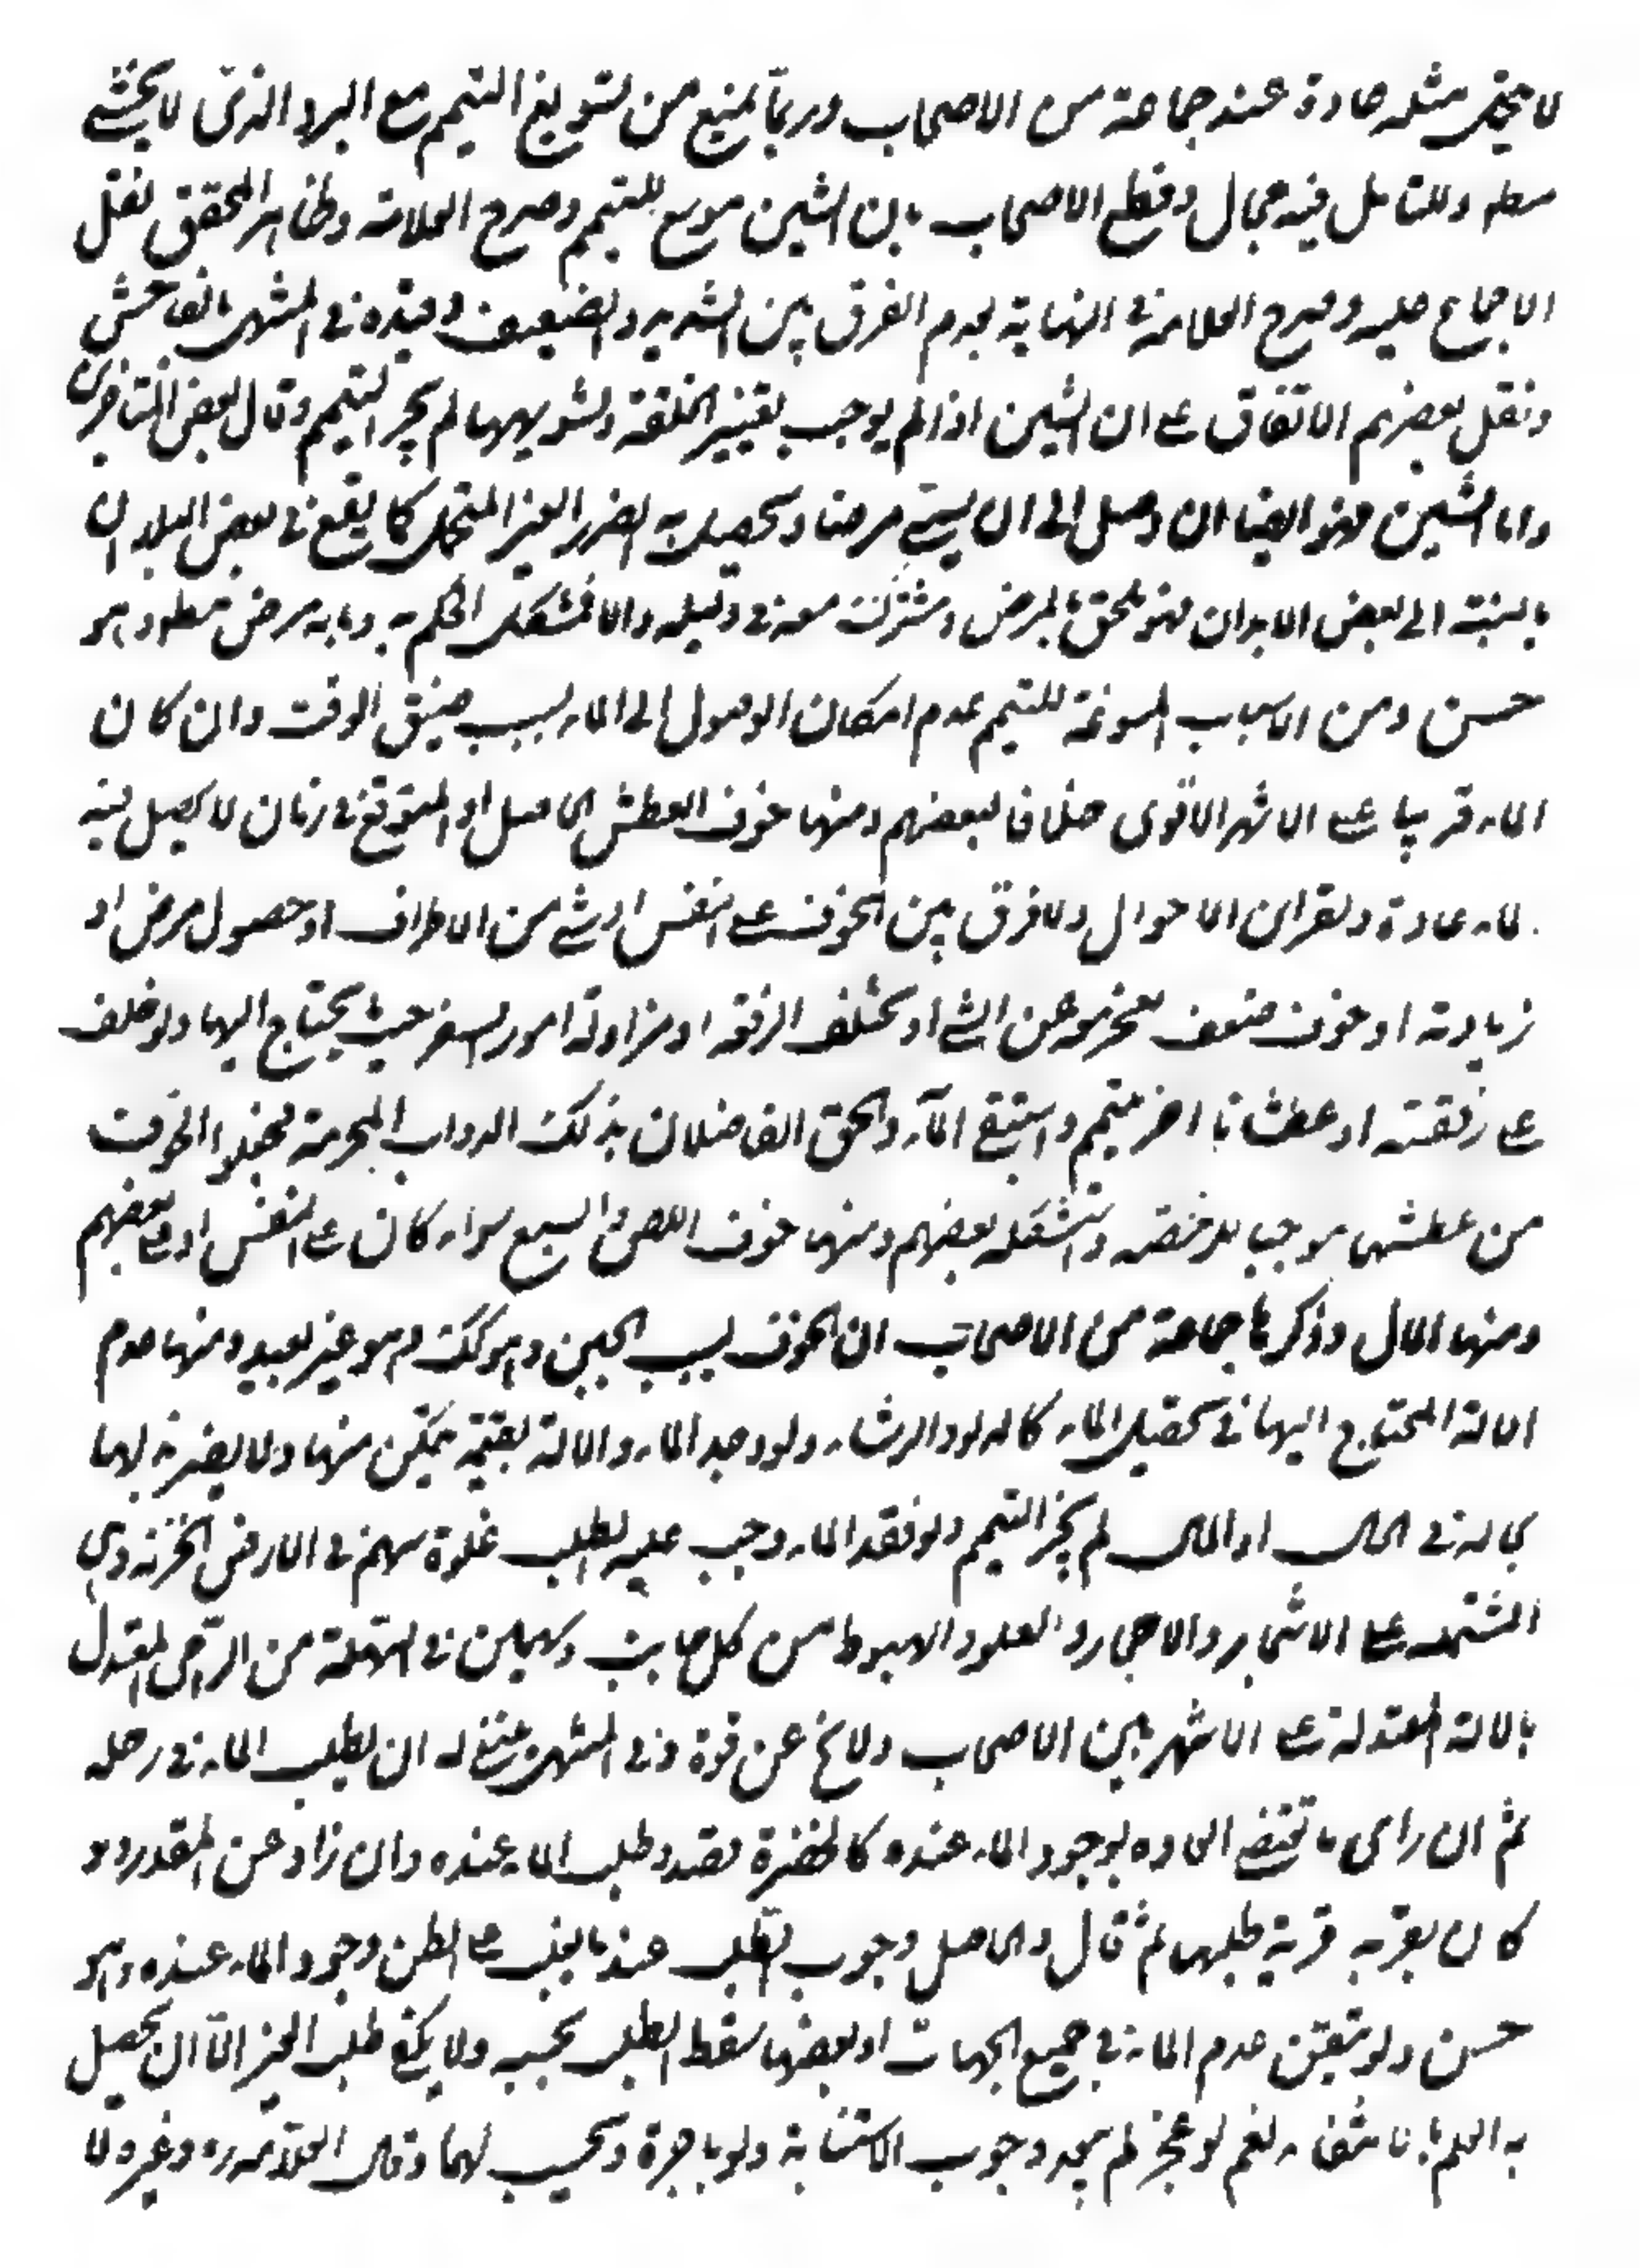 لا يتحمل مثله عادة عند جماعة من الاصحاب وربما يمنع من تسويغ التيمم مع البرد الذي لا يخشى
معه وللتامل فيه مجال وقطع الاصحاب بان الشين مسوغ للتيمم وصرح العلامة وظاهر المحقق نقل
الاجماع عليه وصرح العلامة في النهاية بعدم الفرق بين الشديد والضعيف وقيده في المنتهى بالفاحش
ونقل بعضهم الاتفاق على ان الشين اذا لم يوجب تغيير الخلقة وتشويهها لم يجز التيمم وقال بعض المتاخرين
واما الشين فهو ايضا ان وصل الى ان يسمى مرضا ويحصل به الضرر الغير المتحمل كما يقع في بعض البلدان
بالنسبة الى بعض الابدان فهو ملحق بالمرض ومشترك معه في دليله والا فمشكل الحكم به وبانه مرض مطلقا وهو
حسن ومن الاسباب المسوغة للتيمم عدم امكان الوصول الى الماء بسبب ضيق الوقت وان كان
الماء قريبا على الاشهر الاقوى خلافا لبعضهم ومنها خوف العطش الحاصل او المتوقع في زمان لا يحصل فيه
الماء عادة وبقراين الاحوال ولا فرق بين الخوف على النفس او شيء من الاطراف او حصول مرض او
زيادته او خوف ضعف يعجز معه عن المشي او تخلف الرفقة او مزاولة امور السفر حيث يحتاج اليها ولو خاف
على رفقته او عطشانا اخر تيمم واستبقى الماء والحق الفاضلان بذلك الدواب المحرمة فجعلوا الخوف
من عطشها موجبا للرخصة واستشكله بعضهم ومنها خوف اللص والسبع سواء كان على النفس او على بعضهم
ومنها المال وذكر جماعة من الاصحاب ان الخوف بسبب الجبن وهو كك وهو غير بعيد ومنها عدم
الالة المحتاج اليها في تحصيل الماء كالدلو والرشاء ولو وجد الماء والالة بقيمة يتمكن منها ولا يضر بذلها
بحاله في الحال او المال لم يجز التيمم ولو فقد الماء وجب عليه الطلب غلوة سهم في الارض الحزنة وهي
المشتملة على الاشجار والاحجار والعلو والهبوط من كل جانب وسهمين في السهلة من الرامي المعتدل
بالالة المعتدلة على الاشهر بين الاصحاب ولا يخ عن قوة وفي المنتهى ينبغي له ان يطلب الماء في رحله
ثم ان راى ما تقتضي العادة بوجود الماء عنده كالخضرة قصده وطلب الماء عنده وان زاد عن المقدر ولو
كان بقربه قرية طلبها ثم قال والحاصل وجوب الطلب عند ما يغلب على الظن وجود الماء عنده وهو
حسن ولو تيقن عدم الماء في جميع الجهات او بعضها سقط الطلب بحسبه ولا يكفي طلب الغير الا ان يحصل
به العلم بانتفائه نعم لو عجز لم يبعد وجوب الاستنابة ولو باجرة ويحسب لهما وقال العلامة ره وغيره ولا